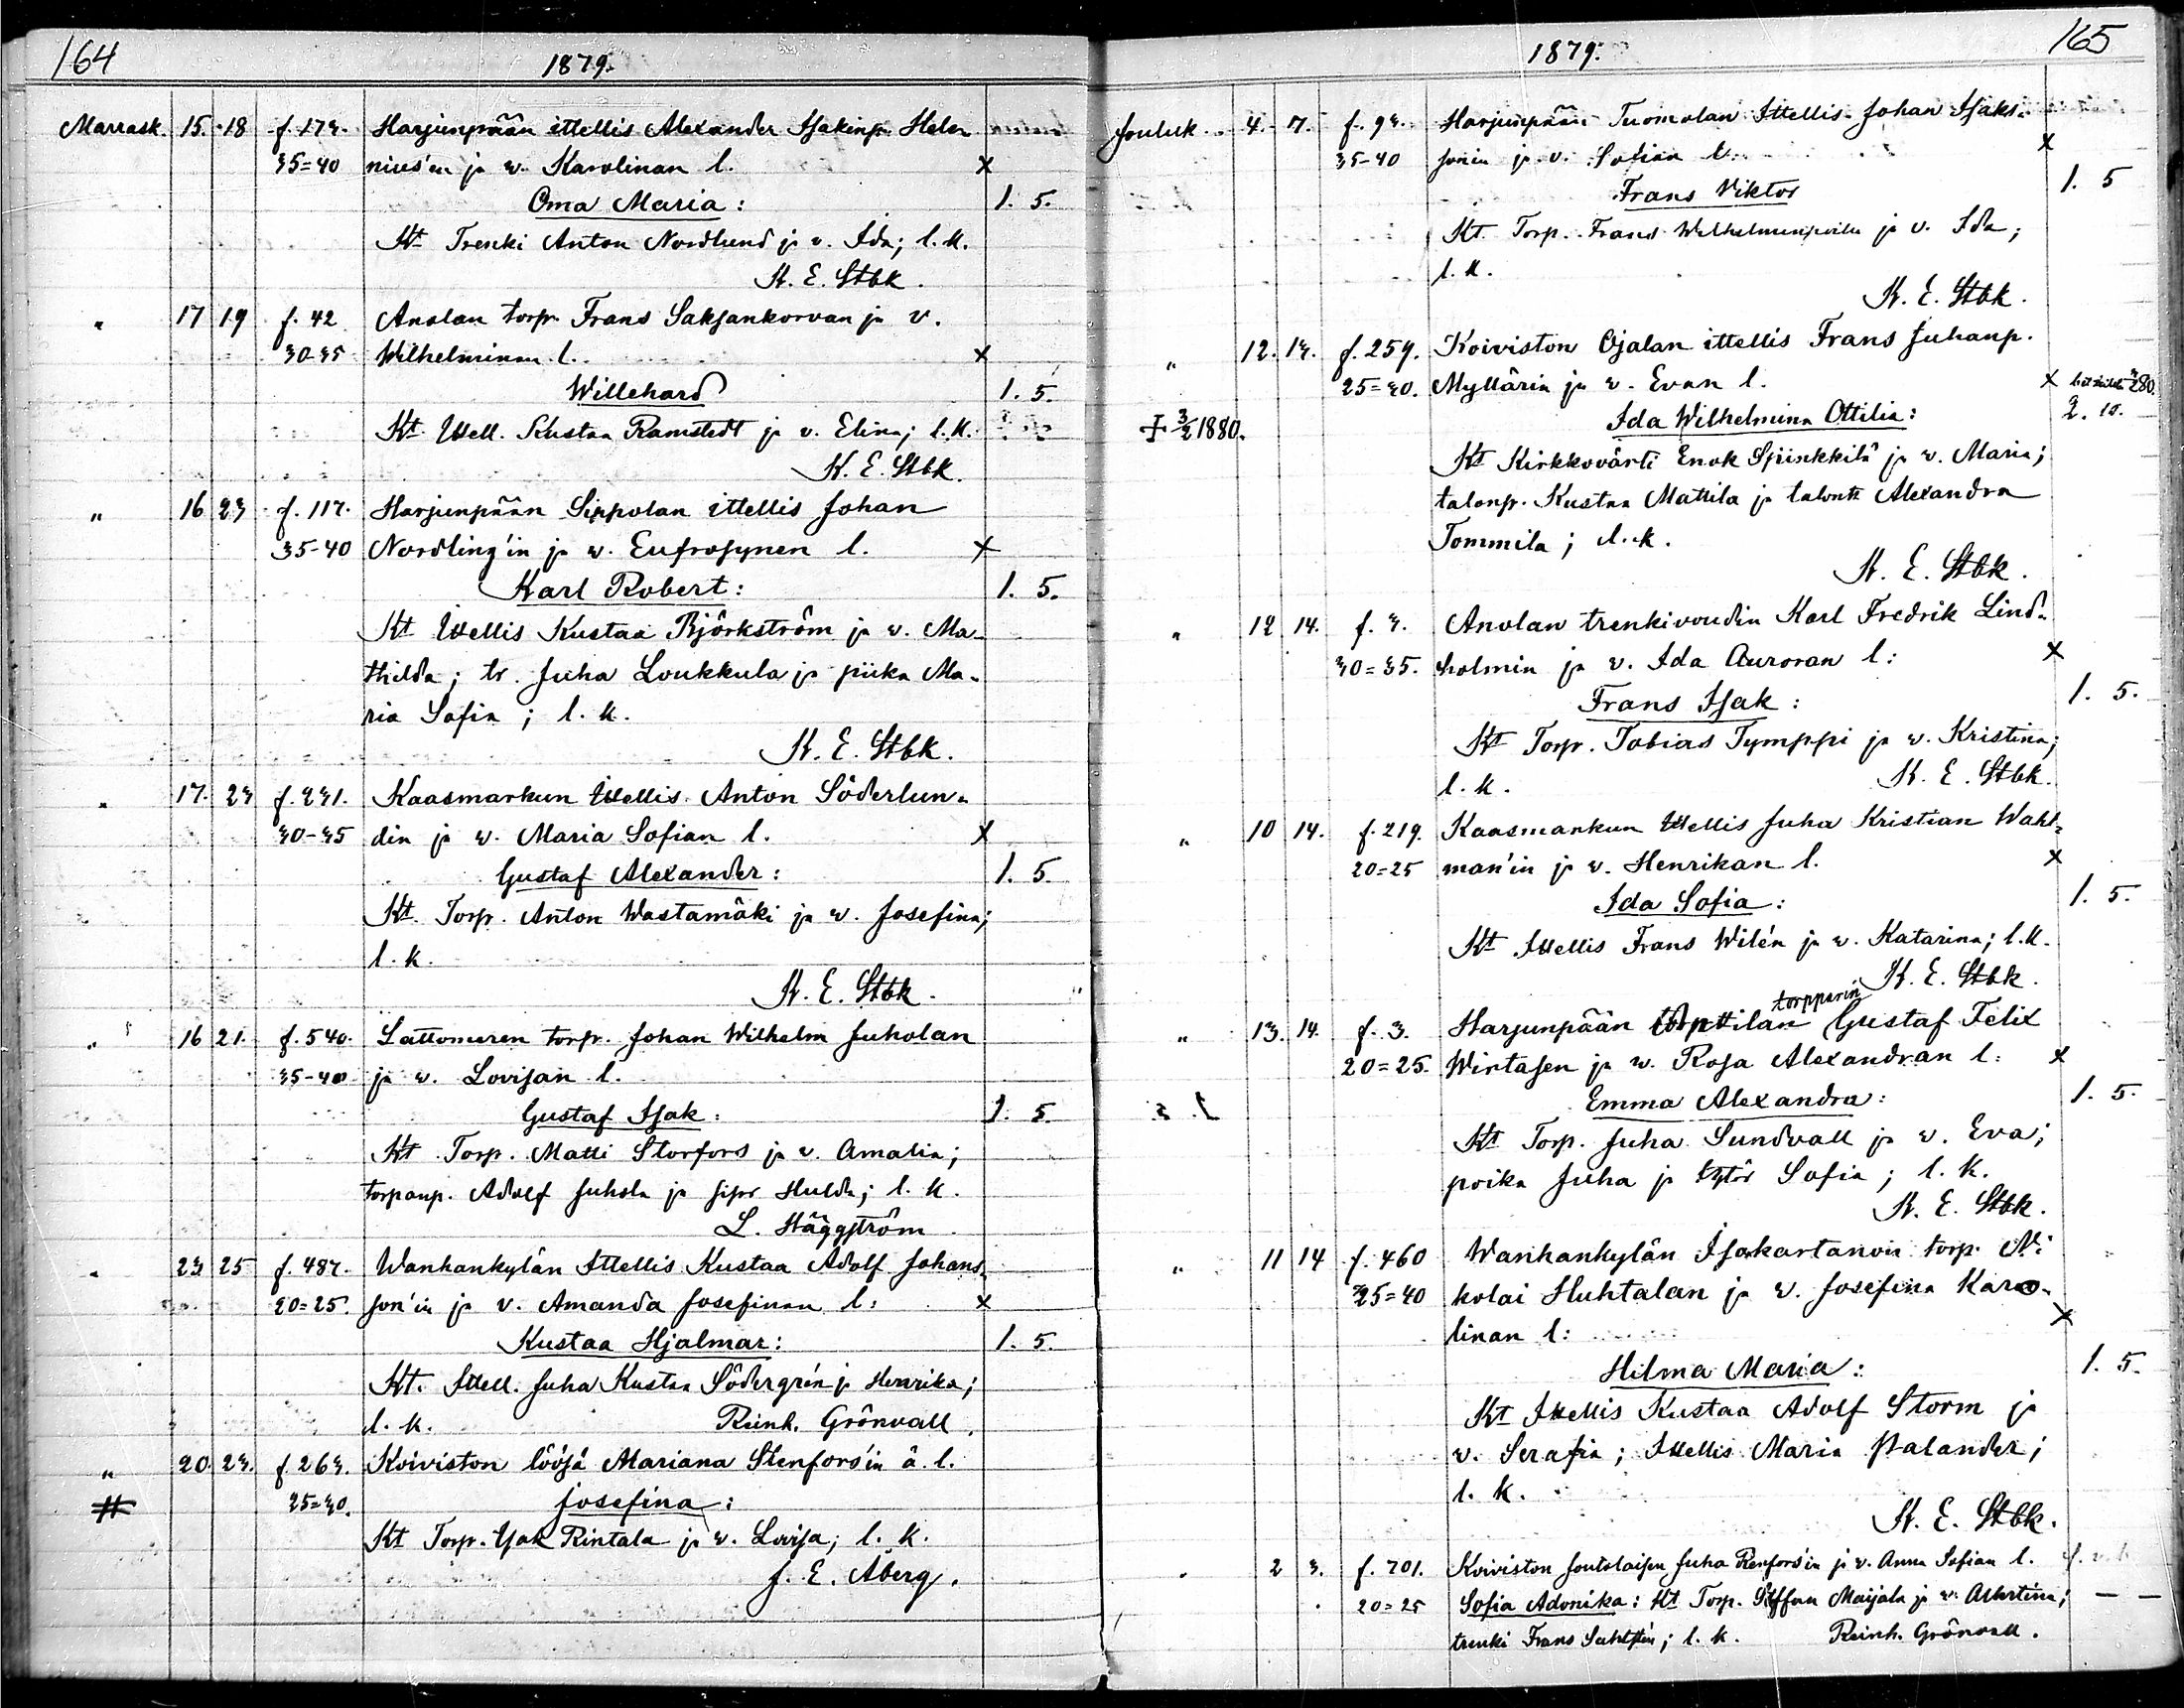 164
1879.
Marrask. 15. 18 f. 173. Harjunpään ittellis Alexander Isakinp. Hele-
35=40 nius'en ja v. Karolinan l. x
Oma Maria: 1. 5.
Kt Trenki Anton Nordlund ja v. Ida; l. k.
K. E. Stbk.
" 17 19 f. 42 Anolan torp. Frans Saksankorvan ja v.
30-35 Wilhelminan l. x
Willehard 1. 5.
Kt Ittell. Kustaa Ramstedt ja v. Elina; l. k.
K. E. Stbk.
" 16 23 f. 117. Harjunpään Sippolan ittellis Johan
35-40 Nordling'in ja v. Eufrosynen l. x
Karl Robert: 1. 5.
Kt Ittellis Kustaa Björkström ja v. Ma-
thilda; tr. Juha Loukkula ja piika Ma-
ria Sofia; l. k.
K. E. Stbk.
" 17. 23 f. 231. Kaasmarkun Ittellis Anton Söderlun-
30-35 din ja v. Maria Sofian l. x
Gustaf Alexander: 1. 5.
Kt. Torp. Anton Wastamäki ja v. Josefina;
l. k.
K. E. Stbk.
" 16 21. f. 540. Lattomeren torp. Johan Wilhelm Juholan
35-40 ja v. Lovisan l.
Gustaf Isak: 1. 5.
Kt Torp. Matti Storfors ja v. Amalia;
torpanp. Adolf Juhola ja sisar Hulda; l. k.
L. Häggström
" 23 25 f. 487. Wanhankylän Ittellis Kustaa Adolf Johans-
20=25. son'in ja v. Amanda Josefinan l: x
Kustaa Hjalmar: 1. 5.
Kt. Ittell. Juha Kustaa Södergrén ja Henrika;
l. k. Reinh. Grönvall.
" 20 23. f. 263. Koiviston lööjä Mariana Stenfors'in ä. l.
# 25=30. Josefina:
Kt Torp. Isak Rintala ja v. Lovisa; l. k.
J. E. Åberg.
165
1879.
Jouluk. 4. 7. f. 93. Harjunpään Tuomolan Ittellis Johan Isaks-
35-40 sonin ja v. Sofian l. x
Frans Viktor 1. 5
Kt. Torp. Frans Wilhelminpoika ja v. Ida;
l. k.
K. E. Stbk.
" 12. 13. f. 259. Koiviston Ojalan ittellis Frans Juhanp.
25=30. Myllärin ja v. Evan l. x
Ida Wilhelmina Ottilia: 2. 10.
† 3/2 1880.
Kt Kirkkovärti Enok Spinkkilä ja v. Maria;
talonp. Kustaa Mattila ja talontr Alexandra
Tommila; l. k.
K. E. Stbk.
" 12 14. f. 3. Anolan trenkivoudin Karl Fredrik Lind-
30=35. holmin ja v. Ida Auroran l: x
Frans Isak: 1. 5.
Kt Torp. Tobias Tymppi ja v. Kristina;
l. k. K. E. Stbk.
" 10 14. f. 219. Kaasmarkun Ittellis Juha Kristian Wahl-
20=25 man'in ja v. Henrikan l. x
Ida Sofia: 1. 5.
Kt Ittellis Frans Wilén ja v. Katarina; l. k.
K. E. Stbk.
torpparin
" 13. 14. f. 3. Harjunpään Gustaf Felix
20=25. Wirtasen ja v. Rosa Alexandran l: x
Emma Alexandra: 1. 5.
Kt Torp. Juha Sundvall ja v. Eva;
poika Juha ja tytär Sofia; l. k.
K. E. Stbk.
" 11 14 f. 460 Wanhankylän Isokartanon torp. Ni-
35=40 kolai Huhtalan ja v. Josefina Karo-
linan l: x
Hilma Maria: 1. 5.
Kt Ittellis Kustaa Adolf Storm ja
v. Serafia; Ittellis Maria Palander;
l. k.
K. E. Stbk.
" 2 3. f. 701. Koiviston Joutolaisen Juha Renfors'in ja v. Anna Sofian l.
20=25 Sofia Adonika: Kt Torp. Steffan Maijala ja v. Albertina; — —
trenki Frans; l. k. Reinh. Grönvall.